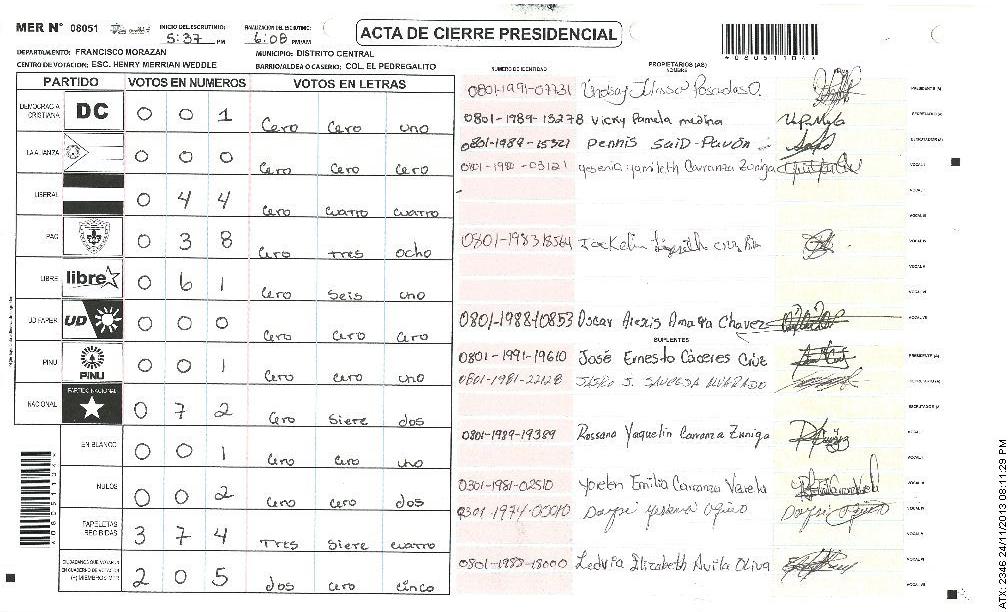 MER N° 08051 INICIO DEL ESCRUTINIO: 5:37 PM FINALIZACION DEL ESCRUTINIO: 6:08 PM/AM
ACTA DE CIERRE PRESIDENCIAL
DEPARTAMENTO: FRANCISCO MORAZAN MUNICIPIO: DISTRITO CENTRAL
CENTRO DE VOTACION: ESC. HENRY MERRIAN WEDDLE BARRIO/ALDEA O CASERIO: COL. EL PEDREGALITO
PARTIDO VOTOS EN NUMEROS VOTOS EN LETRAS
DEMOCRACIA CRISTIANA DC 0 0 1 Cero Cero uno
LA ALIANZA 0 0 0 Cero Cero Cero
LIBERAL 0 4 4 Cero cuatro cuatro
PAC 0 3 8 Cero tres ocho
LIBRE libre 0 6 1 Cero Seis uno
UD FAPER UD 0 0 0 Cero Cero Cero
PINU PINU 0 0 1 Cero Cero uno
NACIONAL PARTIDO NACIONAL 0 7 2 Cero Siete dos
EN BLANCO 0 0 1 Cero Cero uno
NULOS 0 0 2 Cero Cero dos
PAPELETAS RECIBIDAS 3 7 4 Tres Siete cuatro
CIUDADANOS QUE VOTARON EN CUADERNO DE VOTACION (+) MIEMBROS MER 2 0 5 dos Cero Cinco
*08051104*
NUMERO DE IDENTIDAD PROPIETARIOS (AS)
NOMBRE
0801-1991-07731 PRESIDENTE (A)
0801-1989-13278 Vicky Pamela medina SECRETARIO (A)
0801-1989-15321 Dennis Said Pavón ESCRUTADOR (A)
0801-1980-03121 Yesenia Yamileth Carranza Zuniga VOCAL I
VOCAL II
VOCAL III
0801-1983-18564 Jackelin VOCAL IV
VOCAL V
VOCAL VI
0801-1988-10853 Oscar Alexis Amaya Chavez VOCAL VII
SUPLENTES
0801-1991-19610 José Ernesto Cáceres Cruz PRESIDENTE (A)
0801-1981-22128 SECRETARIO (A)
ESCRUTADOR (A)
0801-1989-19389 Rossana Yaquelin Carranza Zuniga VOCAL I
VOCAL II
0301-1981-02510 Emilia Carranza Varela VOCAL III
VOCAL IV
VOCAL V
0801-1983-18000 Ledvia Elizabeth Avila Oliva VOCAL VI
VOCAL VII
*08051104*
ATX: 2346 24/11/2013 08:11:29 PM